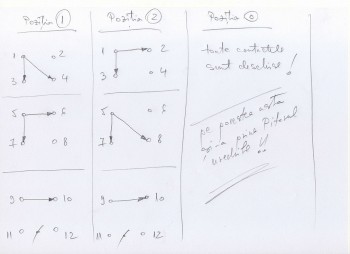 Poziția 1
Poziția 2
Poziția 0
1 2
3 4
1 2
3 4
toate contactele
sunt deschise!
5 6
7 8
5 6
7 8
pe povestea asta
și-a pus
9 10
11 12
9 10
11 12